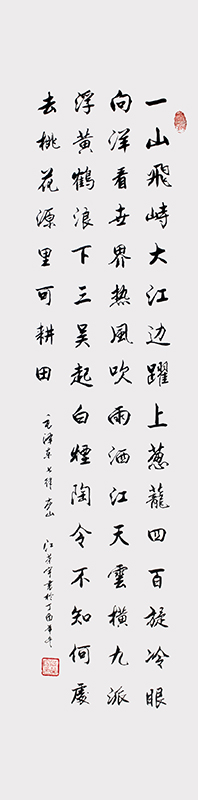 一山飛峙大江边躍上葱蘢四百旋冷眼
向洋看世界热風吹雨洒江天雲横九派
浮黄鶴浪下三吴起白煙陶令不知何處
去桃花源里可耕田
毛泽东七律庐山
書於丁酉年冬